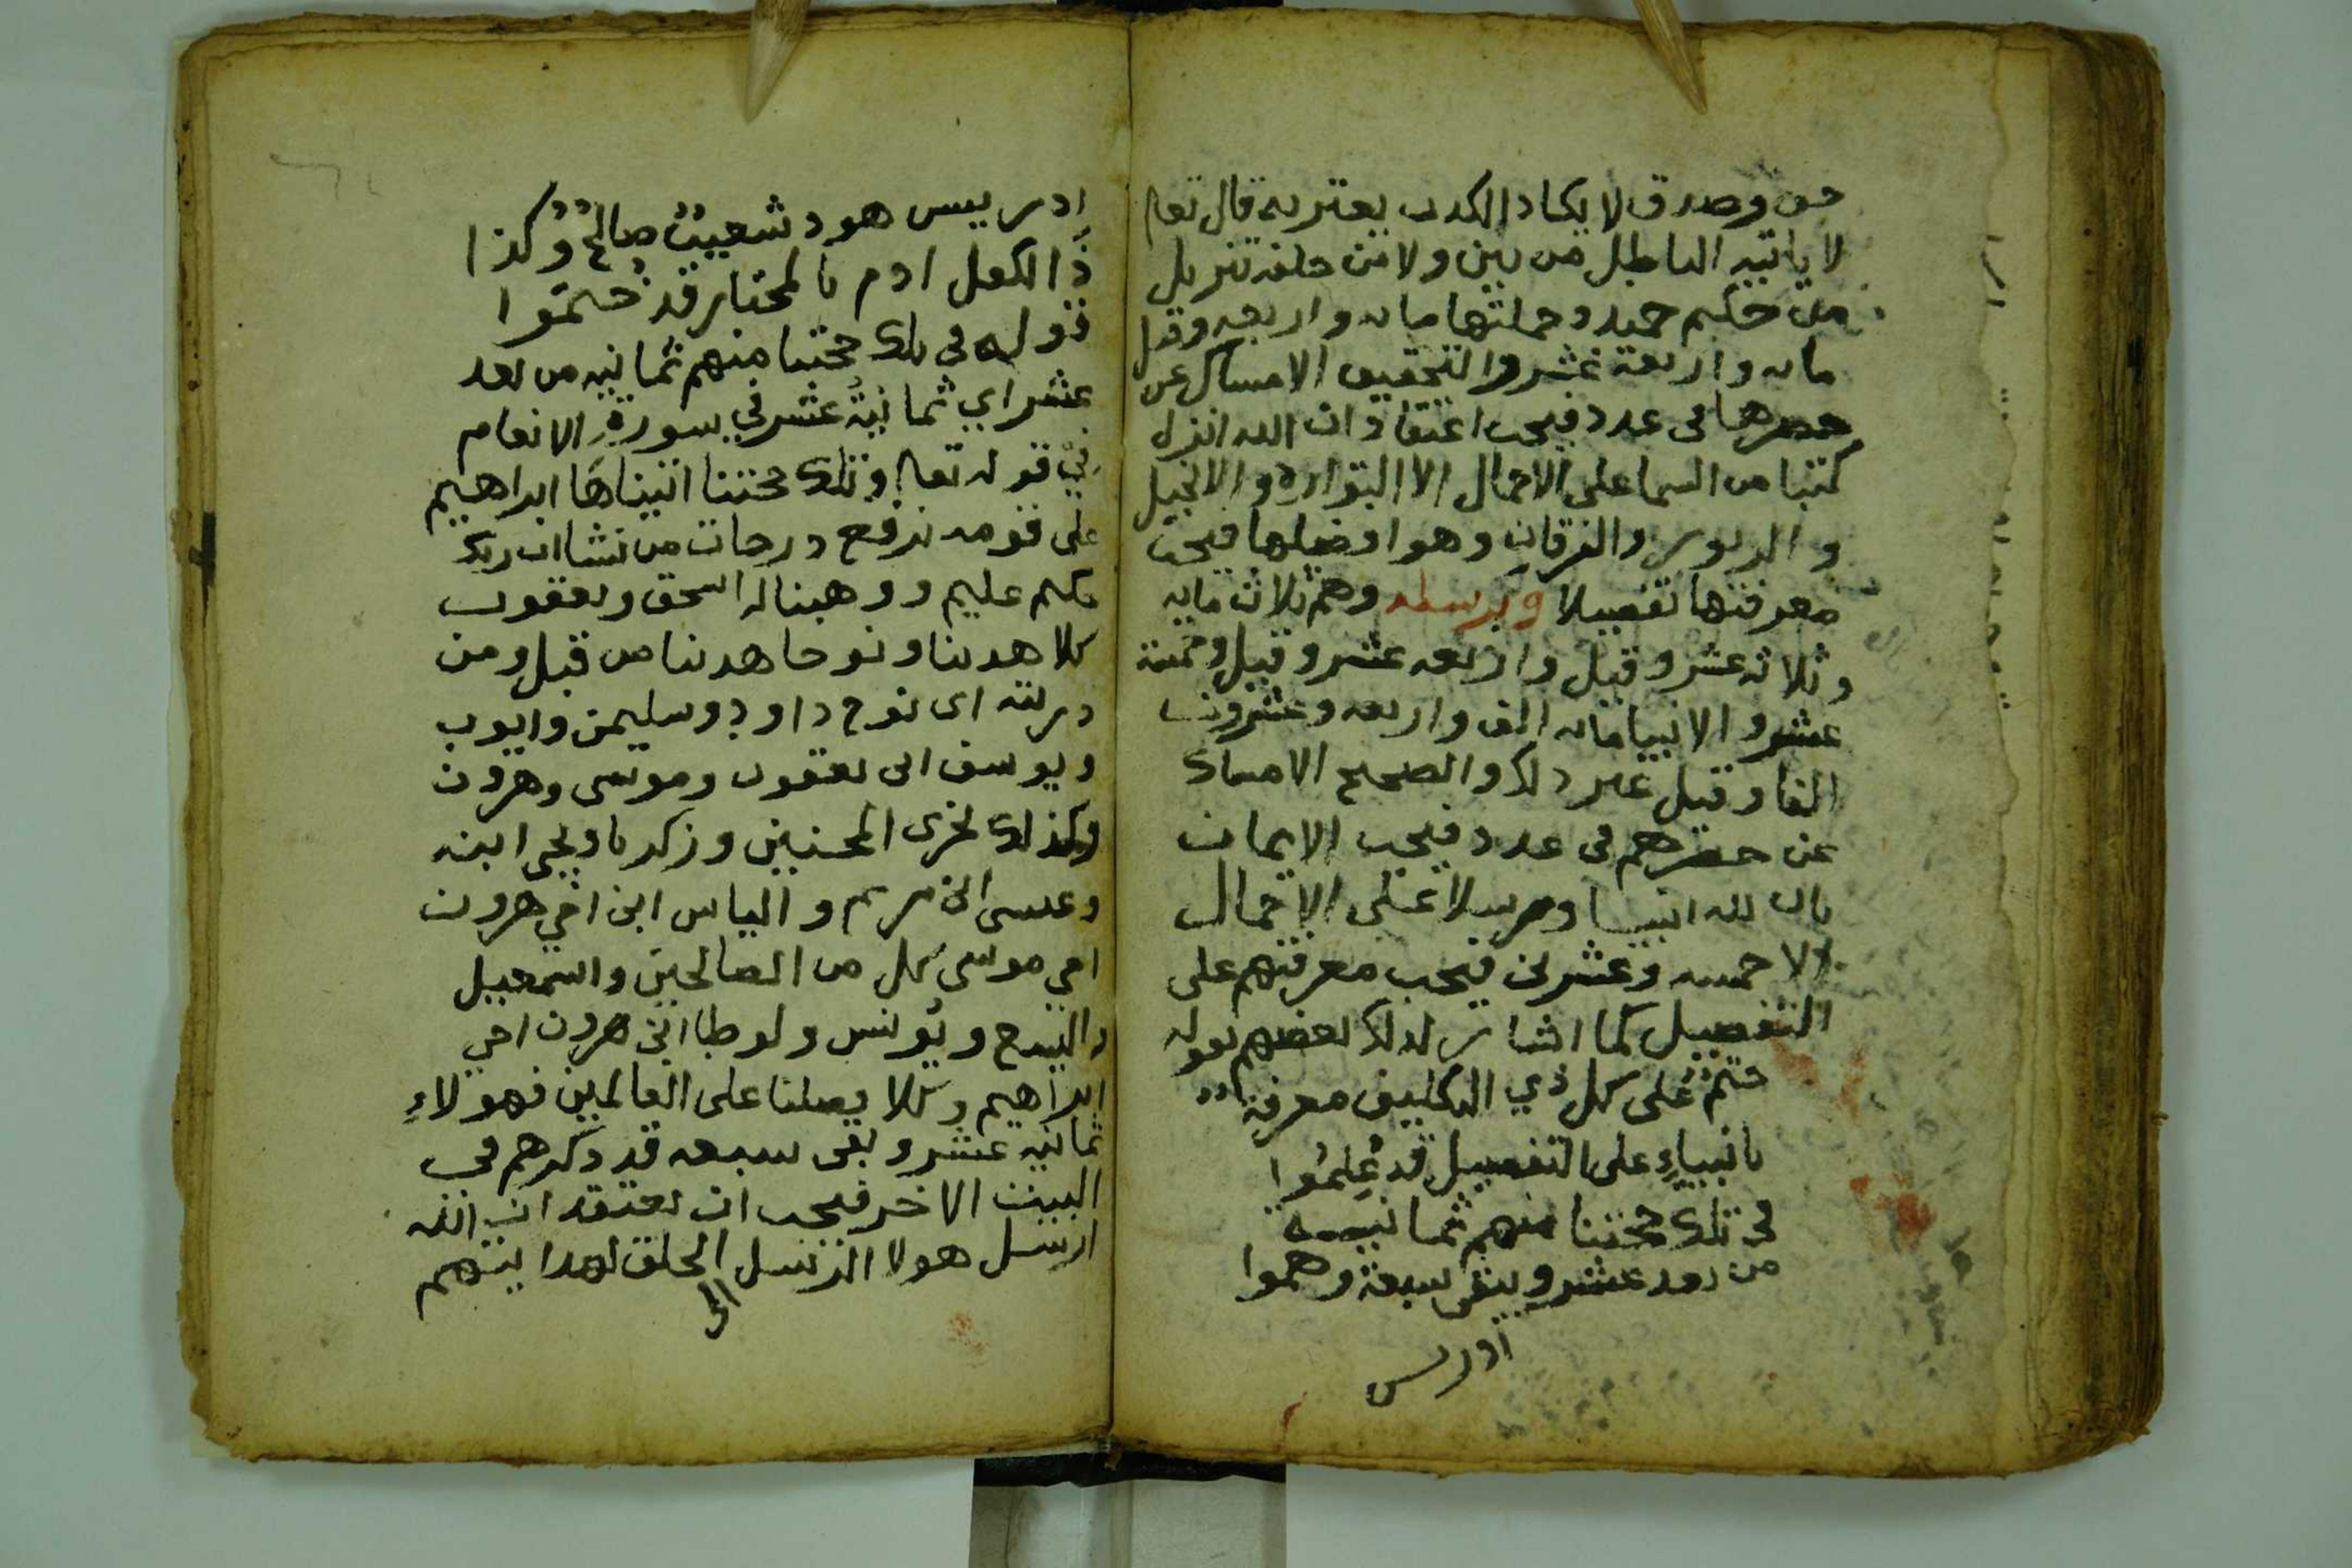 حق وصدق لا يكاد الكدب يعتريه قال تعا
لا ياتيه الباطل من بين ولا من خلفه تنزيل
من حكيم حميد وجملتها مايه واربعه وقيل
مايه واربعة عشر والتحقيق الامساك عن
حصرها في عدد فيجب اعتقاد ان الله انزل
كتبا من السما على الاجمال الا التوارة والانجيل
والزبور والفرقان وهو افضلها فيجب
معرفتها تفصيلا وبرسله وهم ثلاث مايه
وثلاثه عشر وقيل واربعه عشر وقيل وخمسة
عشر والانبيا مايه الف واربعه وعشرون
الفا وقيل غير دلك والصحيح الامساك
عن حصرهم في عدد فيجب الايمان
بان لله انبيا ورسلا على الاجمال
الا خمسه وعشرين فيجب معرفتهم على
التفصيل كما اشار لدلك بعضهم بقوله
حتم على كل ذي التكليف معرفة
بانبياءٍ على التفصيل قد عُلِمُوا
في تلك حجتنا منهم ثمانيه
من بعد عشر ويبقى سبعة وهموا
ادريس
ادريس هود شعيبٌ صالحٌ وكذا
ذُا الكفل ادم بالمختار قد خُتمُوا
قوله في تلك حجتنا منهم ثمانيه من بعد
عشر اي ثمانيةُ عشر في سورةِ الانعام
في قوله تعا وتلك حجتنا اتيناهَا ابراهيم
على قومه نرفع درجات من نشا ان ربك
حكيم عليم ووهبنا له اسحق ويعقوب
كلا هدينا ونوحا هدينا من قبل ومن
دريته اى نوح داود وسليمن وايوب
ويوسف ابن يعقوب وموسى وهرون
وكذلك نجزى المحسنين وزكريا ويحيى ابنه
وعيسى ابن مريم والياس ابن اخي هرون
اخي موسى كل من الصالحين واسمعيل
واليسع ويُونس ولوطا ابن هرون اخي
ابراهيم وكلا فضلنا على العالمين فهولاءِ
ثمانيه عشر وبقى سبعه قد دكرهم في
البيت الاخر فيجب ان يعتقد ان الله
ارسل هولا الرسل الى الخلق لهدايتهم